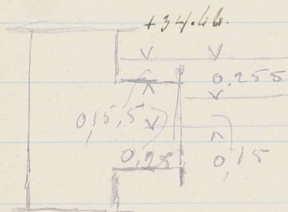 +34.66.
0.255
0,15,5
0,25 0,15